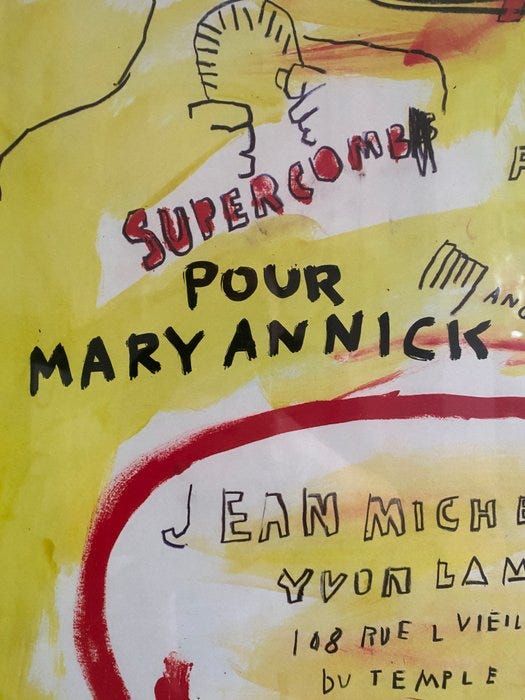 SUPERCOMB
F
POUR
MARY ANNICK
JEAN MICHE
YVON LAM
108 RUE L VIEIL
DU TEMPLE